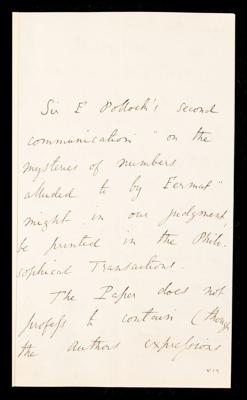 Sir F Pollock's second
communication "on the
mysteries of numbers
alluded to by Fermat"
might in our judgment,
be printed in the Philo-
sophical Transactions.
The Paper does not
profess to contain (though
the authors expressions